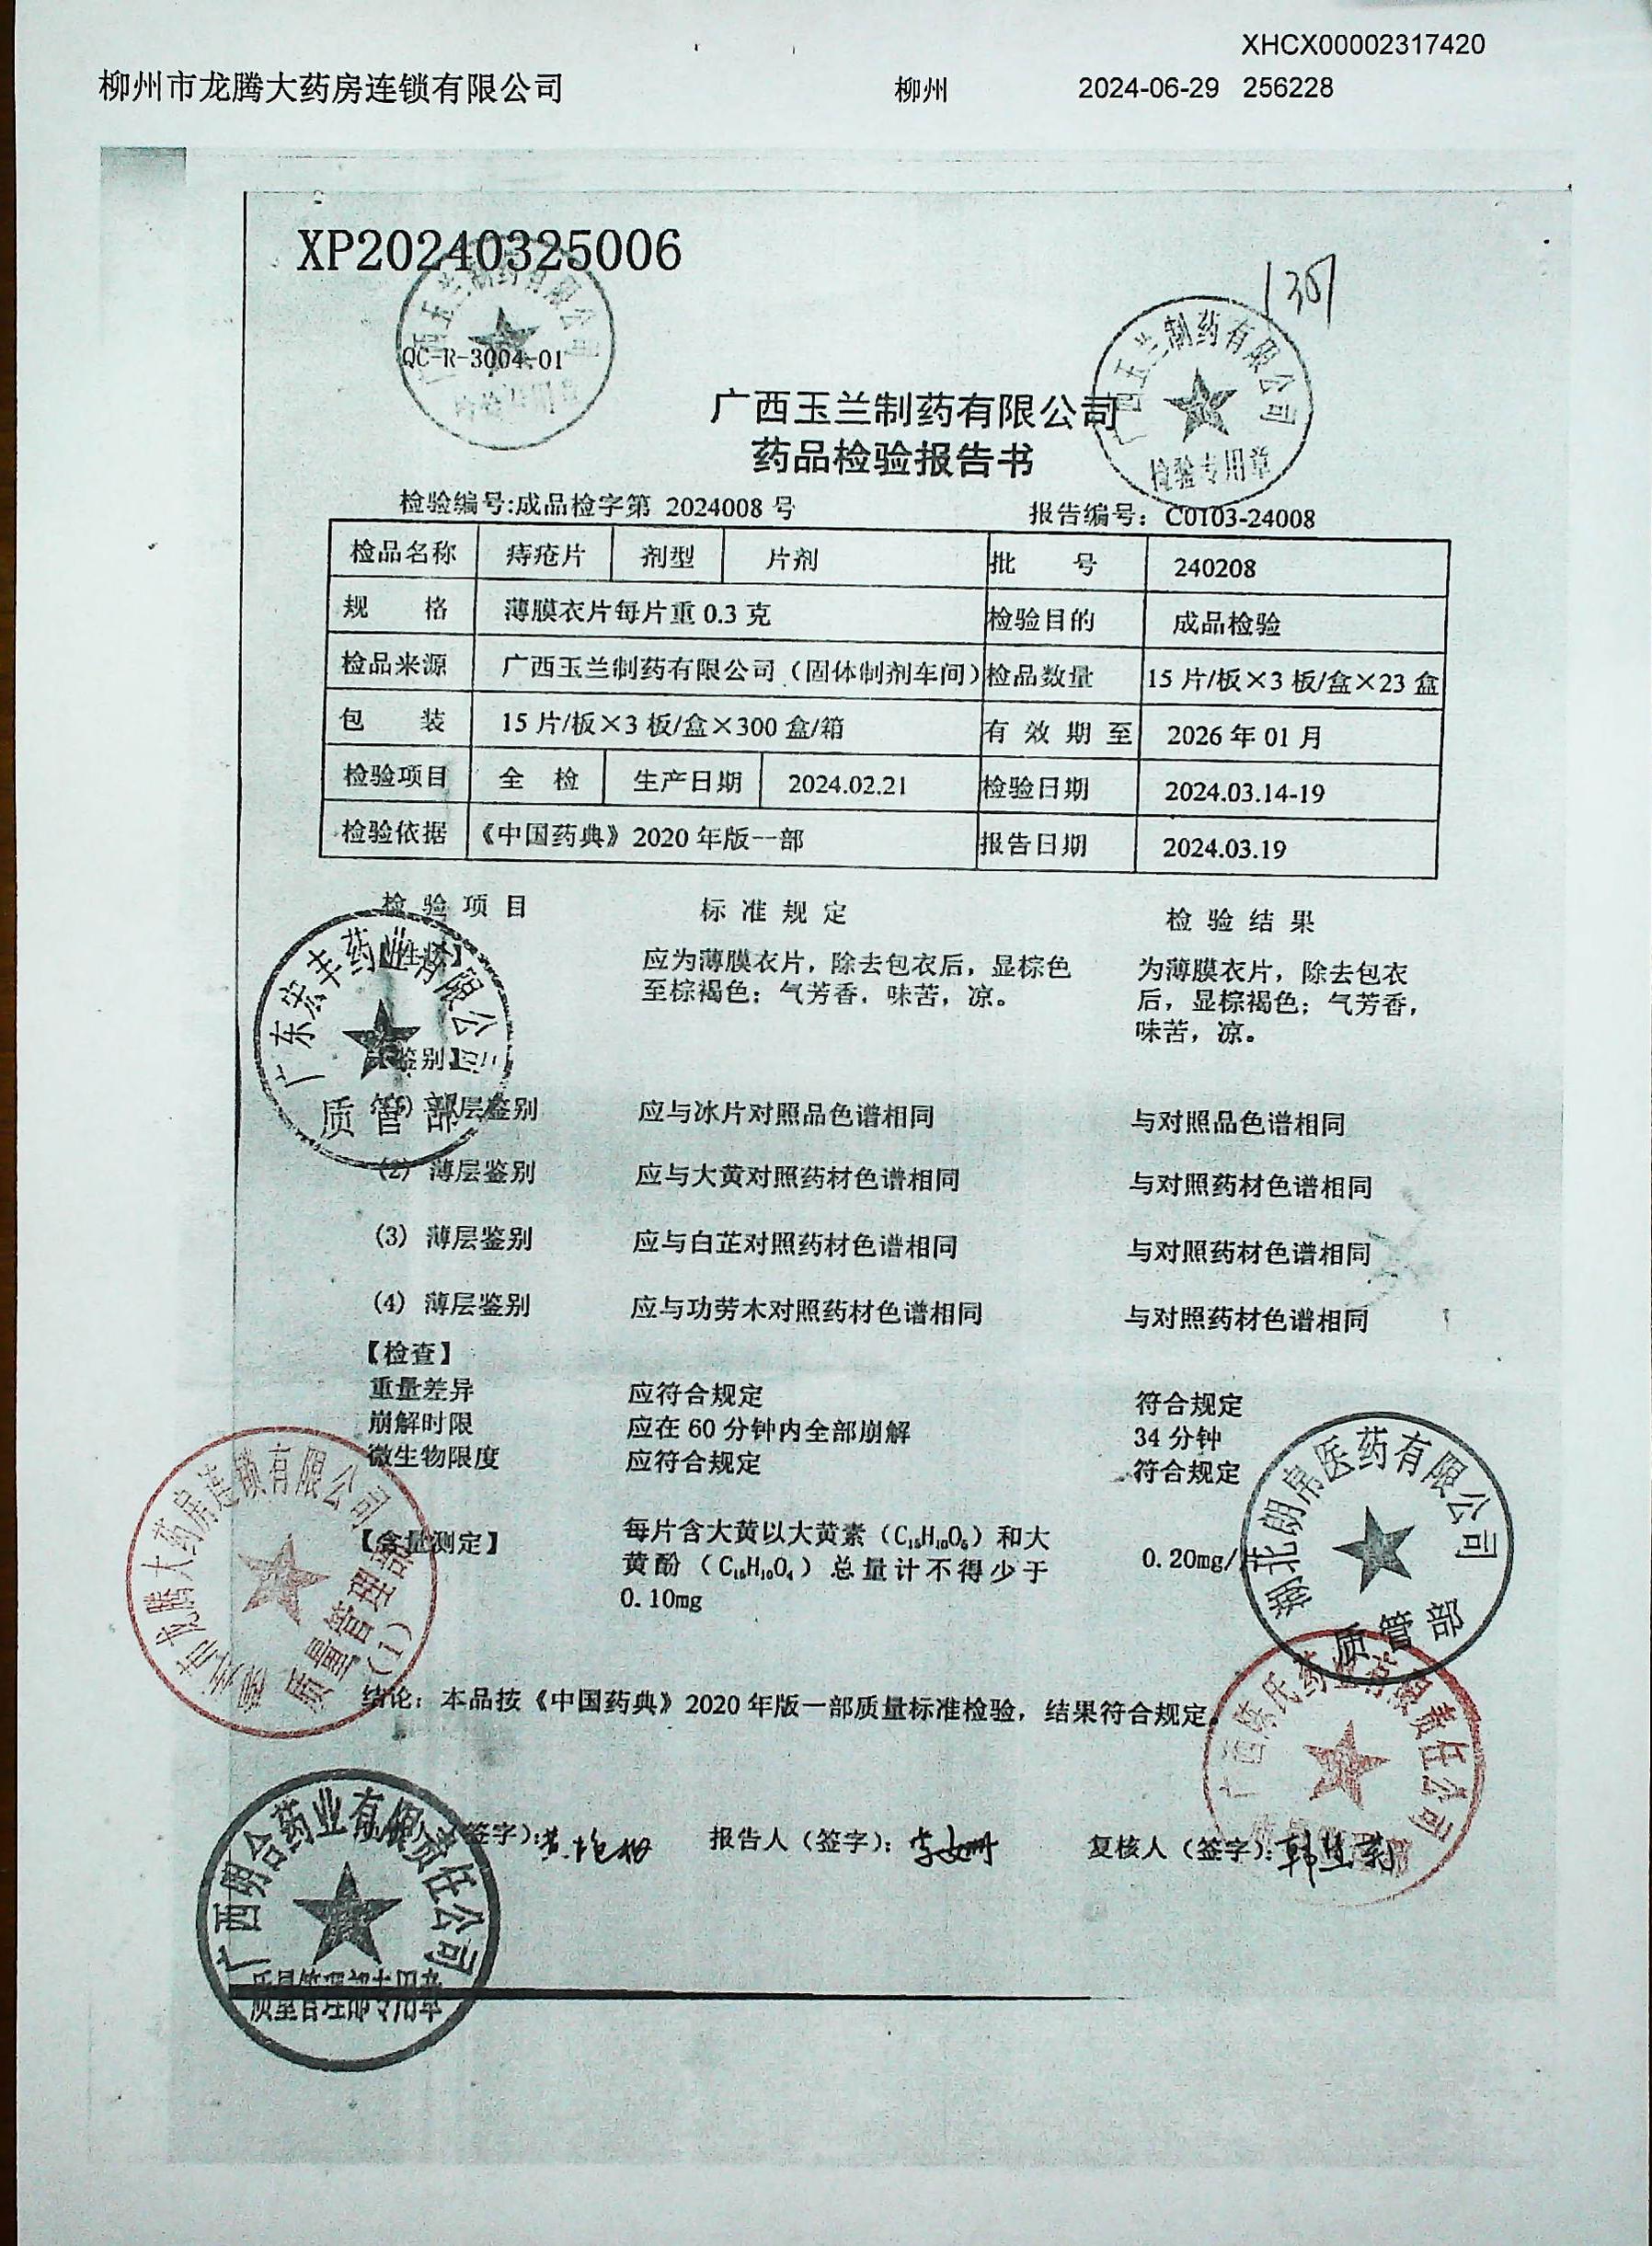 XHCX00002317420
柳州市龙腾大药房连锁有限公司 柳州 2024-06-29 256228
XP20240325006
QC-R-3004-01
广西玉兰制药有限公司
检验专用章
广西玉兰制药有限公司
药品检验报告书
检验编号:成品检字第 2024008 号 报告编号: C0103-24008
检品名称 痔疮片 剂型 片剂 批 号 240208
规 格 薄膜衣片每片重 0.3 克 检验目的 成品检验
检品来源 广西玉兰制药有限公司（固体制剂车间） 检品数量 15 片/板×3 板/盒×23 盒
包 装 15 片/板×3 板/盒×300 盒/箱 有 效 期 至 2026 年 01 月
检验项目 全 检 生产日期 2024.02.21 检验日期 2024.03.14-19
检验依据 《中国药典》2020 年版一部 报告日期 2024.03.19
检 验 项 目 标 准 规 定 检 验 结 果
【性状】 应为薄膜衣片，除去包衣后，显棕色 为薄膜衣片，除去包衣
至棕褐色；气芳香，味苦，凉。 后，显棕褐色；气芳香，
味苦，凉。
【鉴别】
(1) 薄层鉴别 应与冰片对照品色谱相同 与对照品色谱相同
(2) 薄层鉴别 应与大黄对照药材色谱相同 与对照药材色谱相同
(3) 薄层鉴别 应与白芷对照药材色谱相同 与对照药材色谱相同
(4) 薄层鉴别 应与功劳木对照药材色谱相同 与对照药材色谱相同
【检查】
重量差异 应符合规定 符合规定
崩解时限 应在 60 分钟内全部崩解 34 分钟
微生物限度 应符合规定 符合规定
【含量测定】 每片含大黄以大黄素（C₁₅H₁₀O₅）和大 0.20mg/
黄酚（C₁₅H₁₀O₄）总量计不得少于
0.10mg
结论：本品按《中国药典》2020 年版一部质量标准检验，结果符合规定。
（签字）： 报告人（签字）： 复核人（签字）：
广东宏丰药业有限公司
质管部
柳州市龙腾大药房连锁有限公司
质量管理部
(1)
湖北朗帛医药有限公司
质管部
广西陈氏药业有限责任公司
广西明合药业有限责任公司
质量管理部专用章